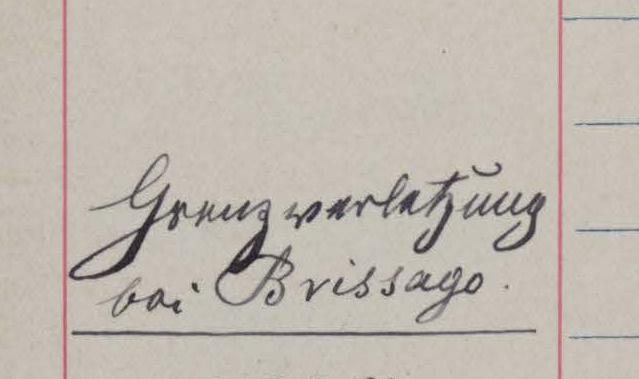 Grenzverletzung
bei Brissago.